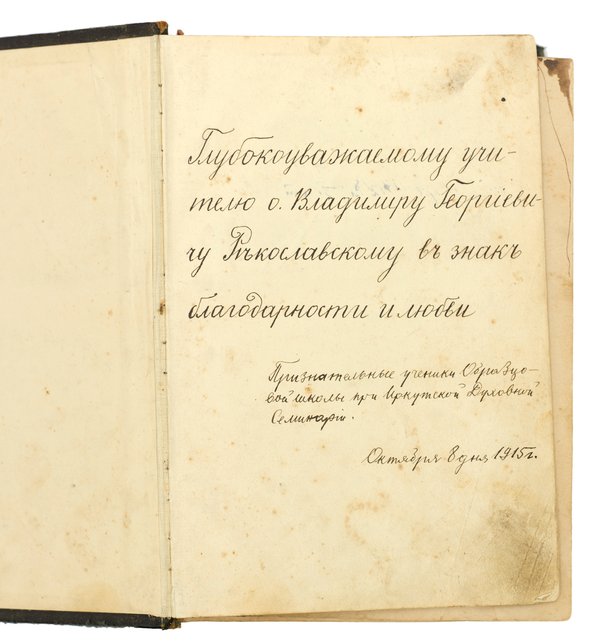 Глубокоуважаемому учи-
телю о. Владимиру Георгіеви-
чу Рѣкославскому въ знакъ
благодарности и любви
Признательные ученики Образцо-
вой школы при Иркутской Духовной
Семинаріи.
Октября 8 дня 1915 г.